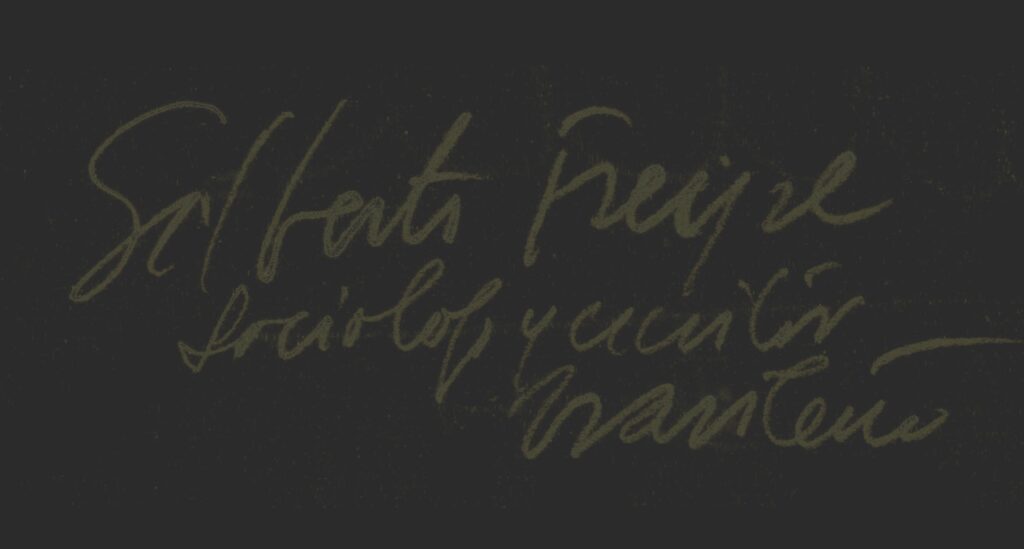 Gilberto Freyre
sociologo y escritor
brasileño